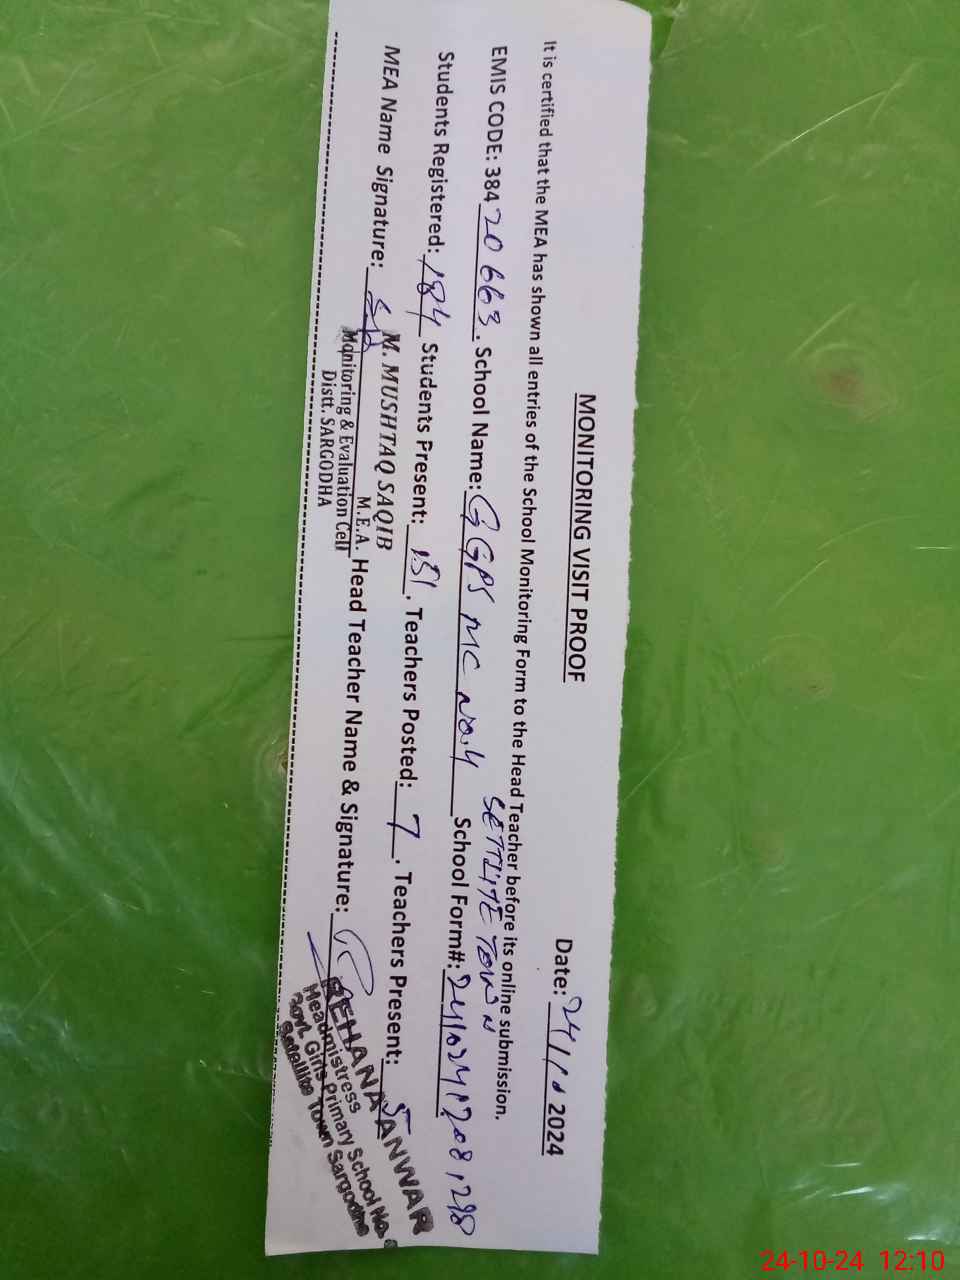 MONITORING VISIT PROOF
Date: 24/10 2024
It is certified that the MEA has shown all entries of the School Monitoring Form to the Head Teacher before its online submission.
SETTLITE TOWN
EMIS CODE: 384 20663. School Name: GGPS MC NO.4 School Form#:
Students Registered: 184 Students Present: 151. Teachers Posted: 7. Teachers Present: 5
MEA Name Signature: M. MUSHTAQ SAQIB
M.E.A. Head Teacher Name & Signature:
Monitoring & Evaluation Cell
Distt. SARGODHA
REHANA ANWAR
Headmistress
Govt. Girls Primary School No.
Satellite Town Sargodha
24-10-24 12:10